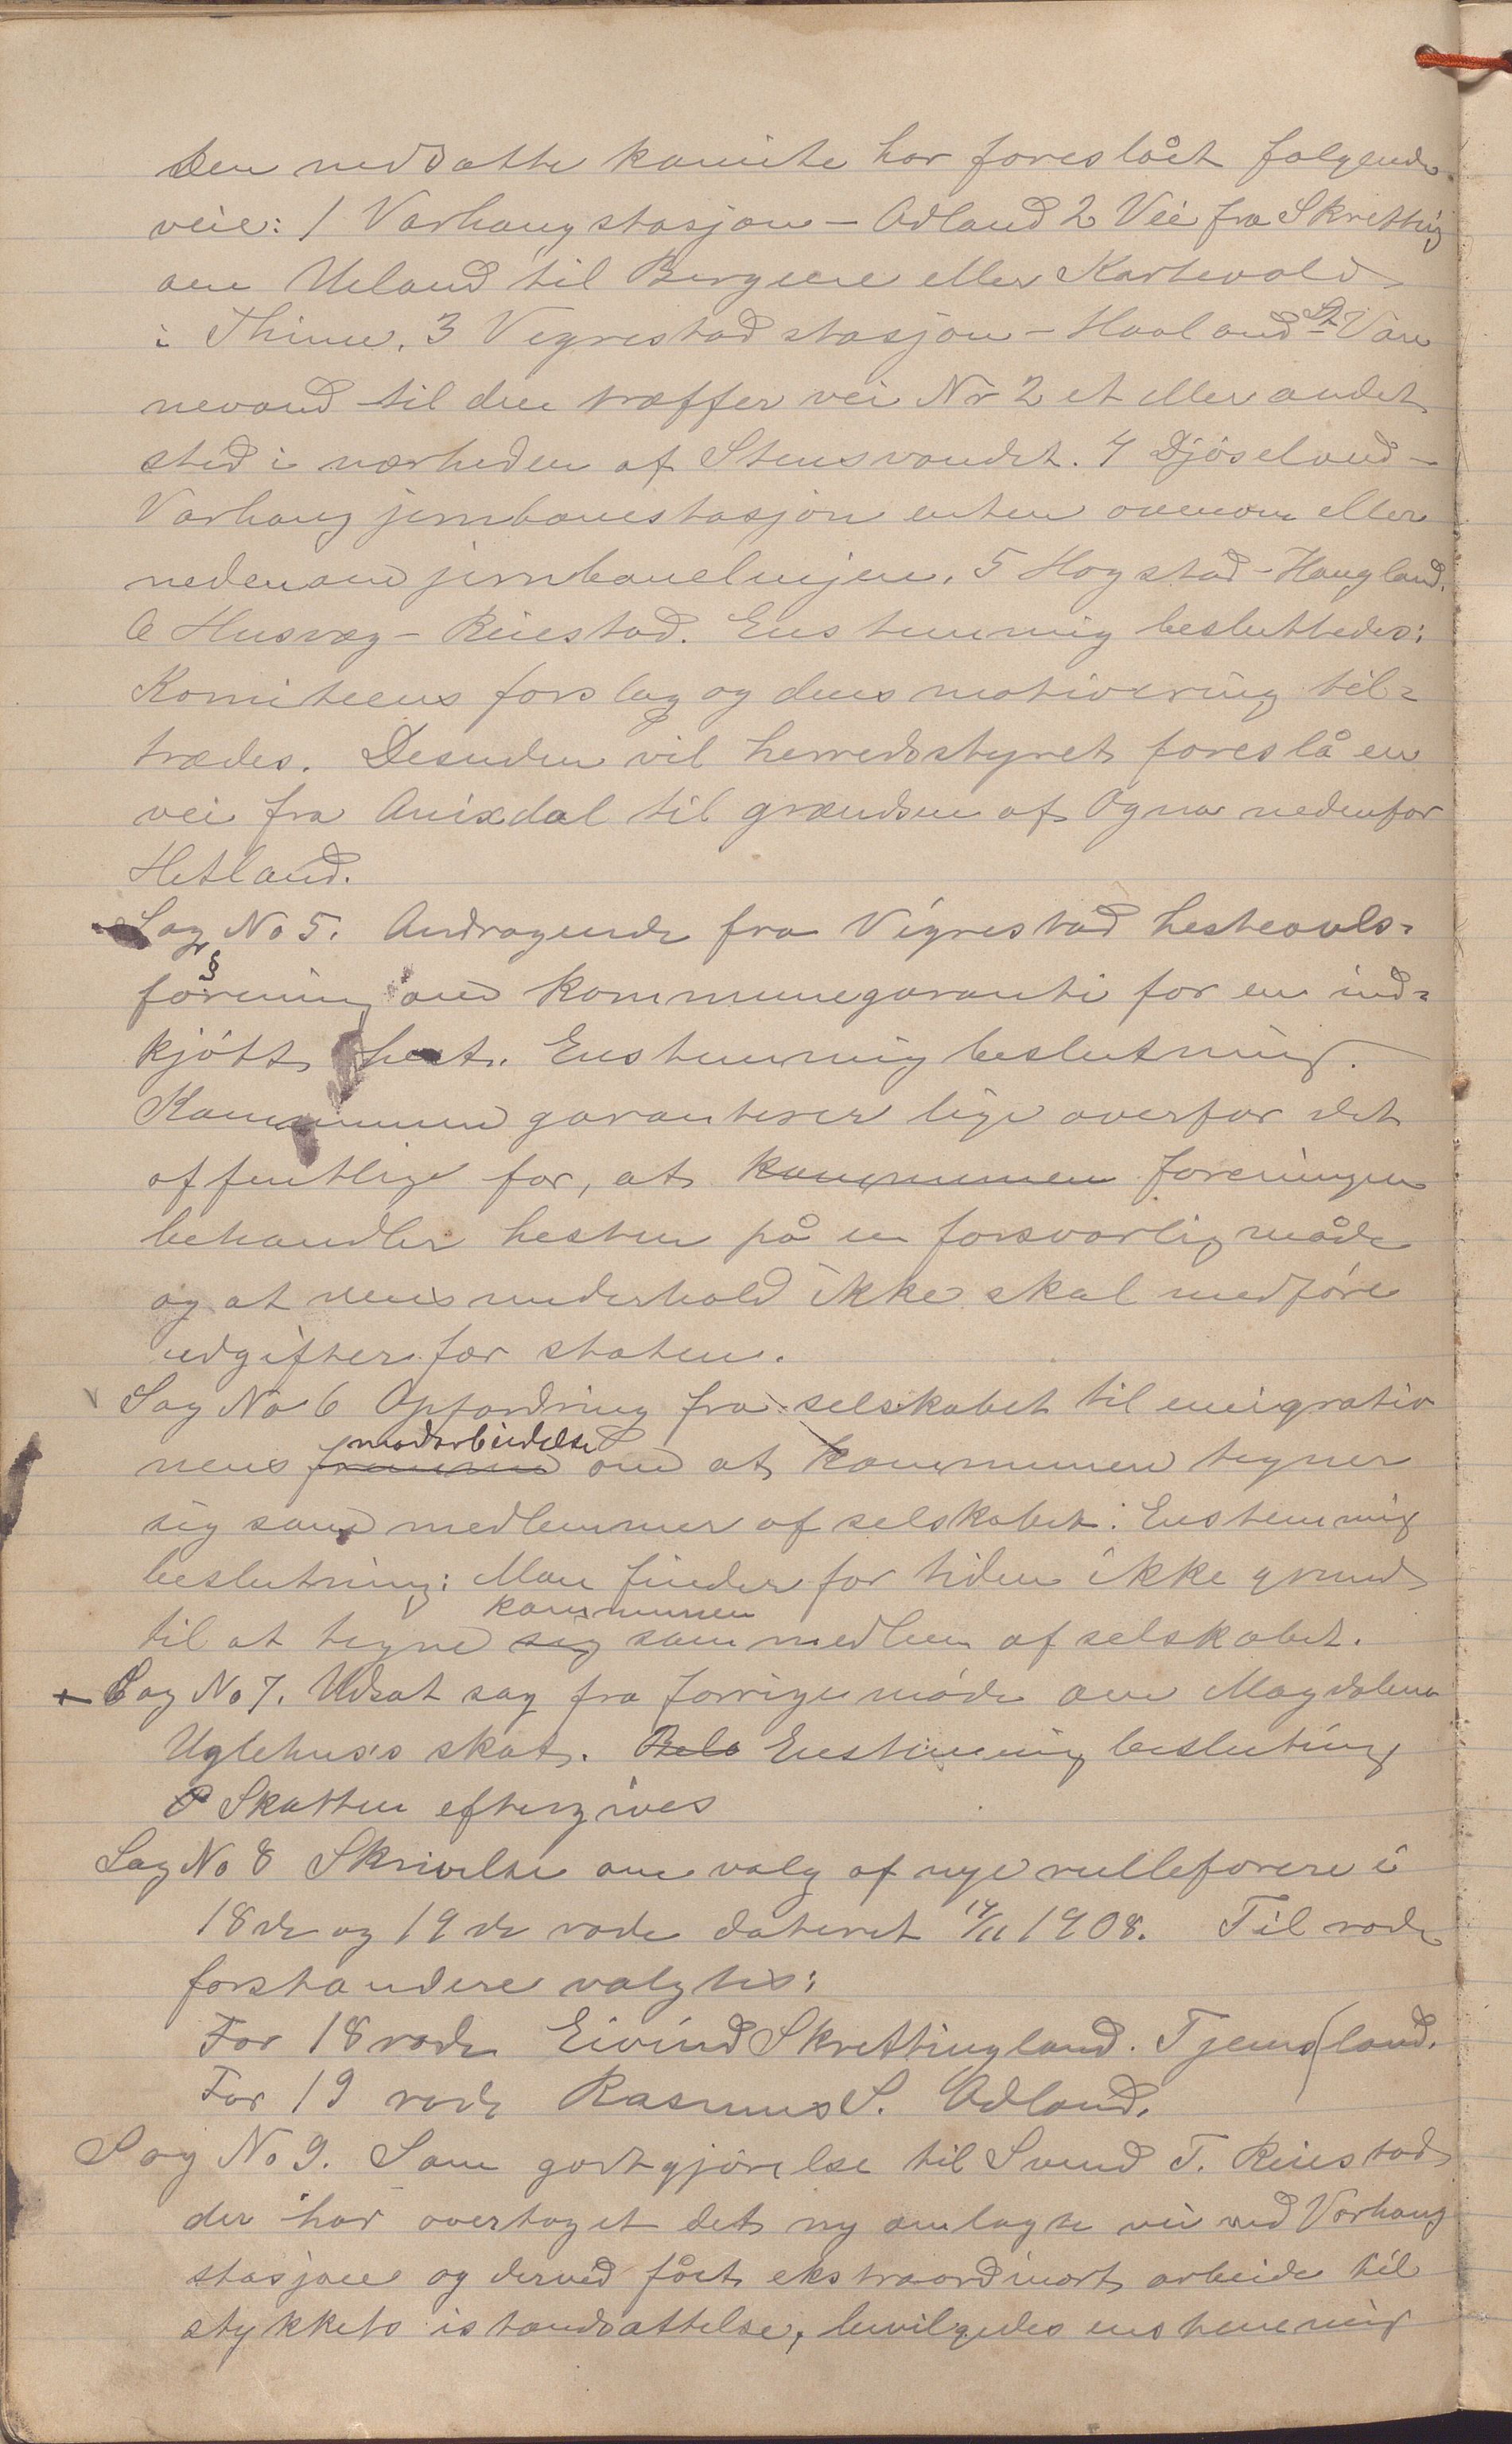 Den nedsatte komite har foreslået følgende
veie: 1 Varhaug stasjon – Ødland 2 Vei fra Skretting
om Ueland til Bergene eller Kartevold
i Thime. 3 Vigrestad stasjon – Haaland St. Var
nevand til den træffer vei Nr 2 et eller andet
sted i nærheden af Stensvandet. 4 Djøseland –
Varhaug jernbanestasjon enten ovenom eller
nedenom jernbanelinjen. 5 Hogstad – Haugland.
6 Husvæg – Reiestad. Enstemmig besluttedes:
Komiteens forslag og dens motivering til-
trædes. Desuden vil herredsstyret foreslå en
vei fra Anixdal til grændsen af Ogna nedenfor
Hetland.
Sag No 5. Andragende fra Vigrestad hesteavls-
forening om kommunegaranti for en ind-
kjöbt hest. Enstemmig beslutning.
Kommunen garanterer lige overfor det
offentlige for, at kommunen foreningen
behandler hesten på en forsvarlig måde
og at dens underhold ikke skal medføre
udgifter for staten.
Sag No 6 Opfordring fra selskabet til emigratio
nens fremme modarbeidelse om at kommunen tegner
sig som medlemmer af selskabet. Enstemmig
beslutning: Man finder for tiden ikke grund
til at tegne sig kommunen som medlem af selskabet.
Sag No 7. Udsat sag fra forrige møde om Magdalena
Uglehus's skat. Bels Enstemmig beslutning
Skatten eftergives
Sag No 8 Skrivelse om valg af nye rulleførere i
18de og 19de rode dateret 14/11 1908. Til rode
forstandere valgtes:
For 18 rode Eivind Skrettingland. Tjemsland.
For 19 rode Rasmus S. Ødland.
Sag No 9. Som godtgjörelse til Svend T. Reiestad
der har overtaget det ny omlagte vei ved Varhaug
stasjon og derved fået ekstraordinært arbeide til
stykkets istandsættelse, bevilgedes enstemmig